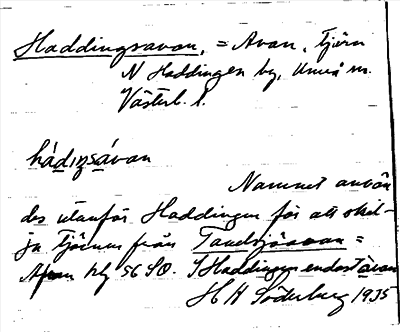 Haddingsavan, = Avan, tjärn
N Haddingen by, Umeå sn.
Västerb. l.
hádiŋsávan
Namnet använ
des utanför Haddingen för att skil-
ja tjärnen från Tandsjöavan =
Avan blg 56 SO. I Haddingen endast avan
H H Söderberg 1935